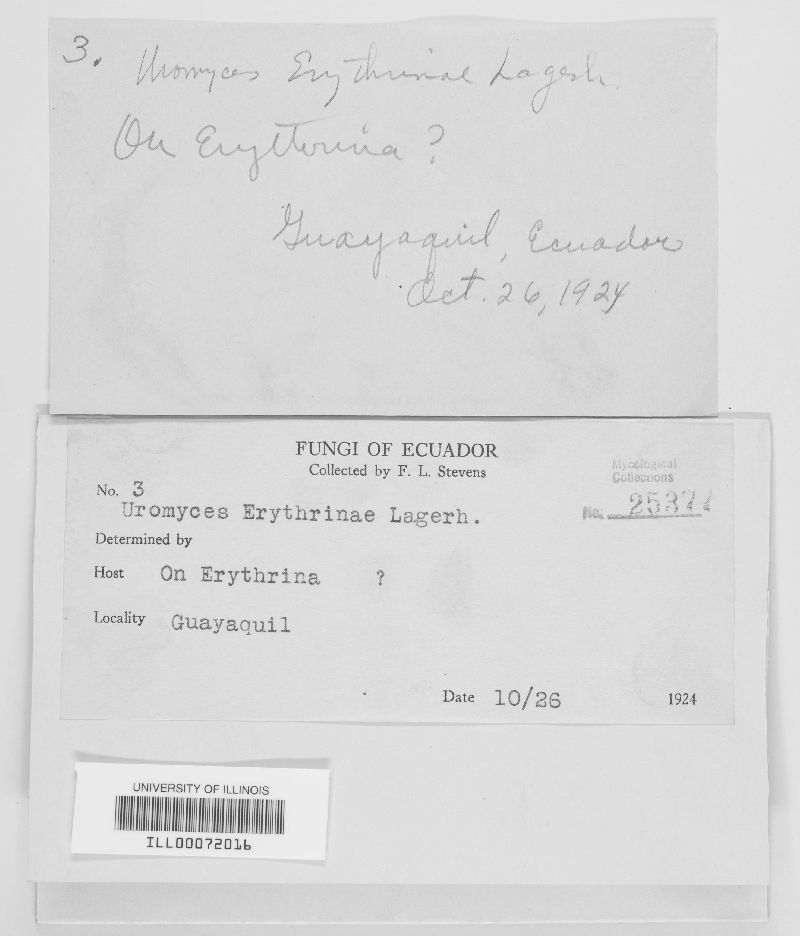 3. Uromyces Erythrinae Lagerh.
On Erythrina ?
Guayaquil, Ecuador
Oct. 26, 1924
FUNGI OF ECUADOR
Collected by F. L. Stevens
Mycological
Collections
No. 3
No:
Uromyces Erythrinae Lagerh.
Determined by
Host On Erythrina ?
Locality Guayaquil
Date 10/26 1924
UNIVERSITY OF ILLINOIS
ILL00072016